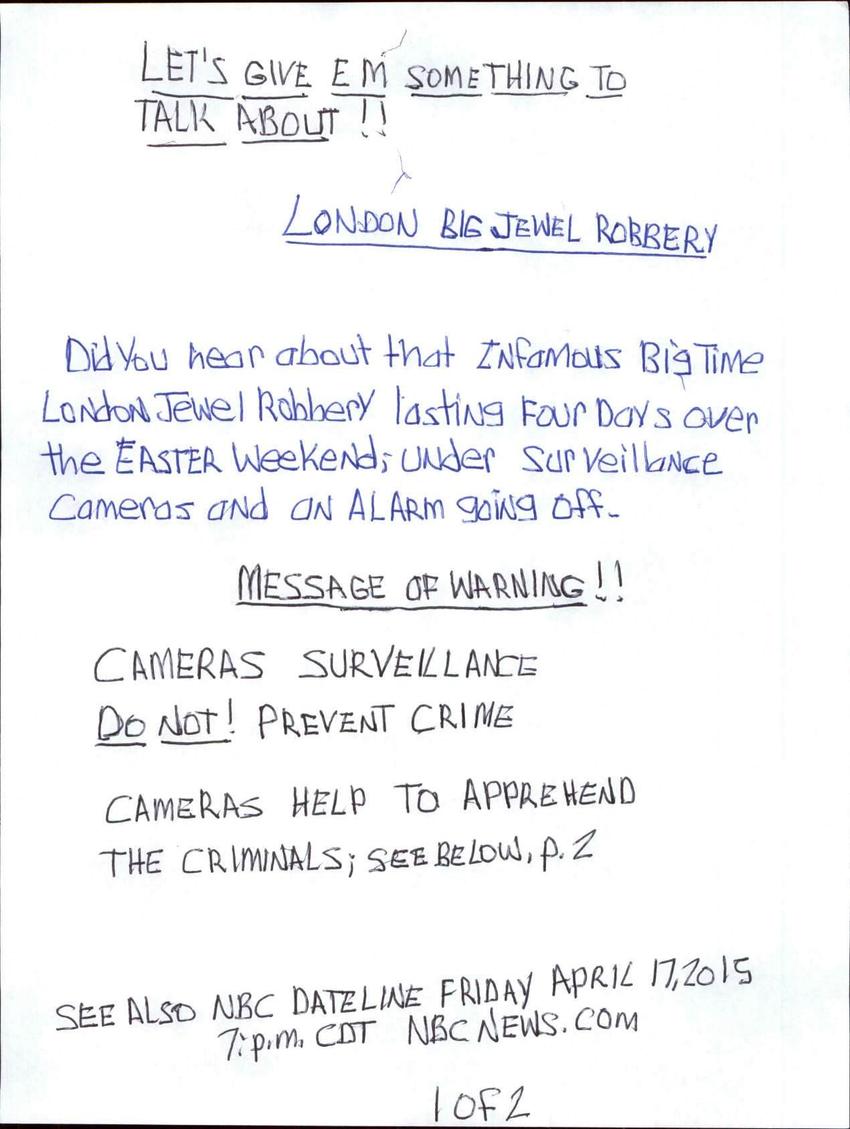 LET'S GIVE EM SOMETHING TO
TALK ABOUT !!
LONDON BIG JEWEL ROBBERY
Did You hear about that INfamous Big Time
London Jewel Robbery lasting Four Days over
the EASTER Weekend; under Surveillance
Cameras and an ALARM going off.
MESSAGE OF WARNING!!
CAMERAS SURVEILLANCE
DO NOT! PREVENT CRIME
CAMERAS HELP TO APPREHEND
THE CRIMINALS; SEE BELOW, p. 2
SEE ALSO NBC DATELINE FRIDAY APRIL 17, 2015
7:p.m. CDT NBC NEWS.COM
1 OF 2